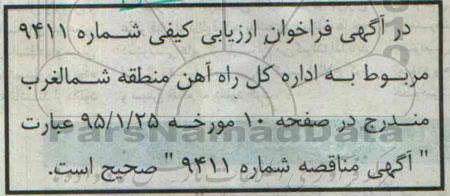 در آگهی فراخوان ارزیابی کیفی شماره ۹۴۱۱
مربوط به اداره کل راه آهن منطقه شمالغرب
مندرج در صفحه ۱۰ مورخه ۹۵/۱/۲۵ عبارت
" آگهی مناقصه شماره ۹۴۱۱ " صحیح است.
ParsNamadData